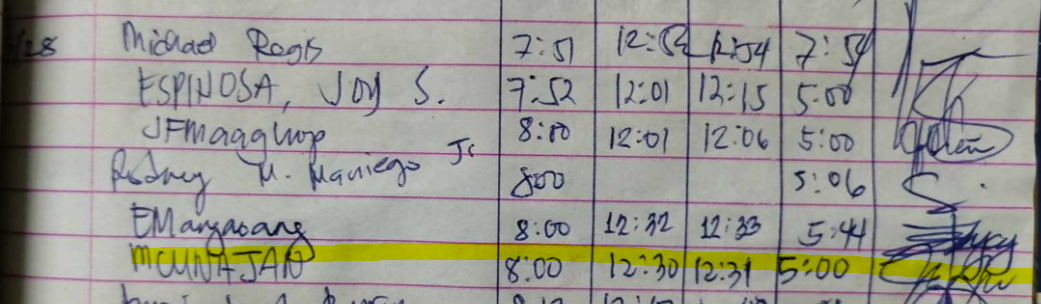 /28 Michael Regis 7:51 12:52 12:54 7:54
ESPINOSA, JOY S. 7:52 12:01 12:15 5:00
8:00 12:01 12:06 5:00
Rodney M. Maniego Jr 8:00 5:06
EManyasang 8:00 12:32 12:33 5:44
MCUNAJAN 8:00 12:30 12:31 5:00